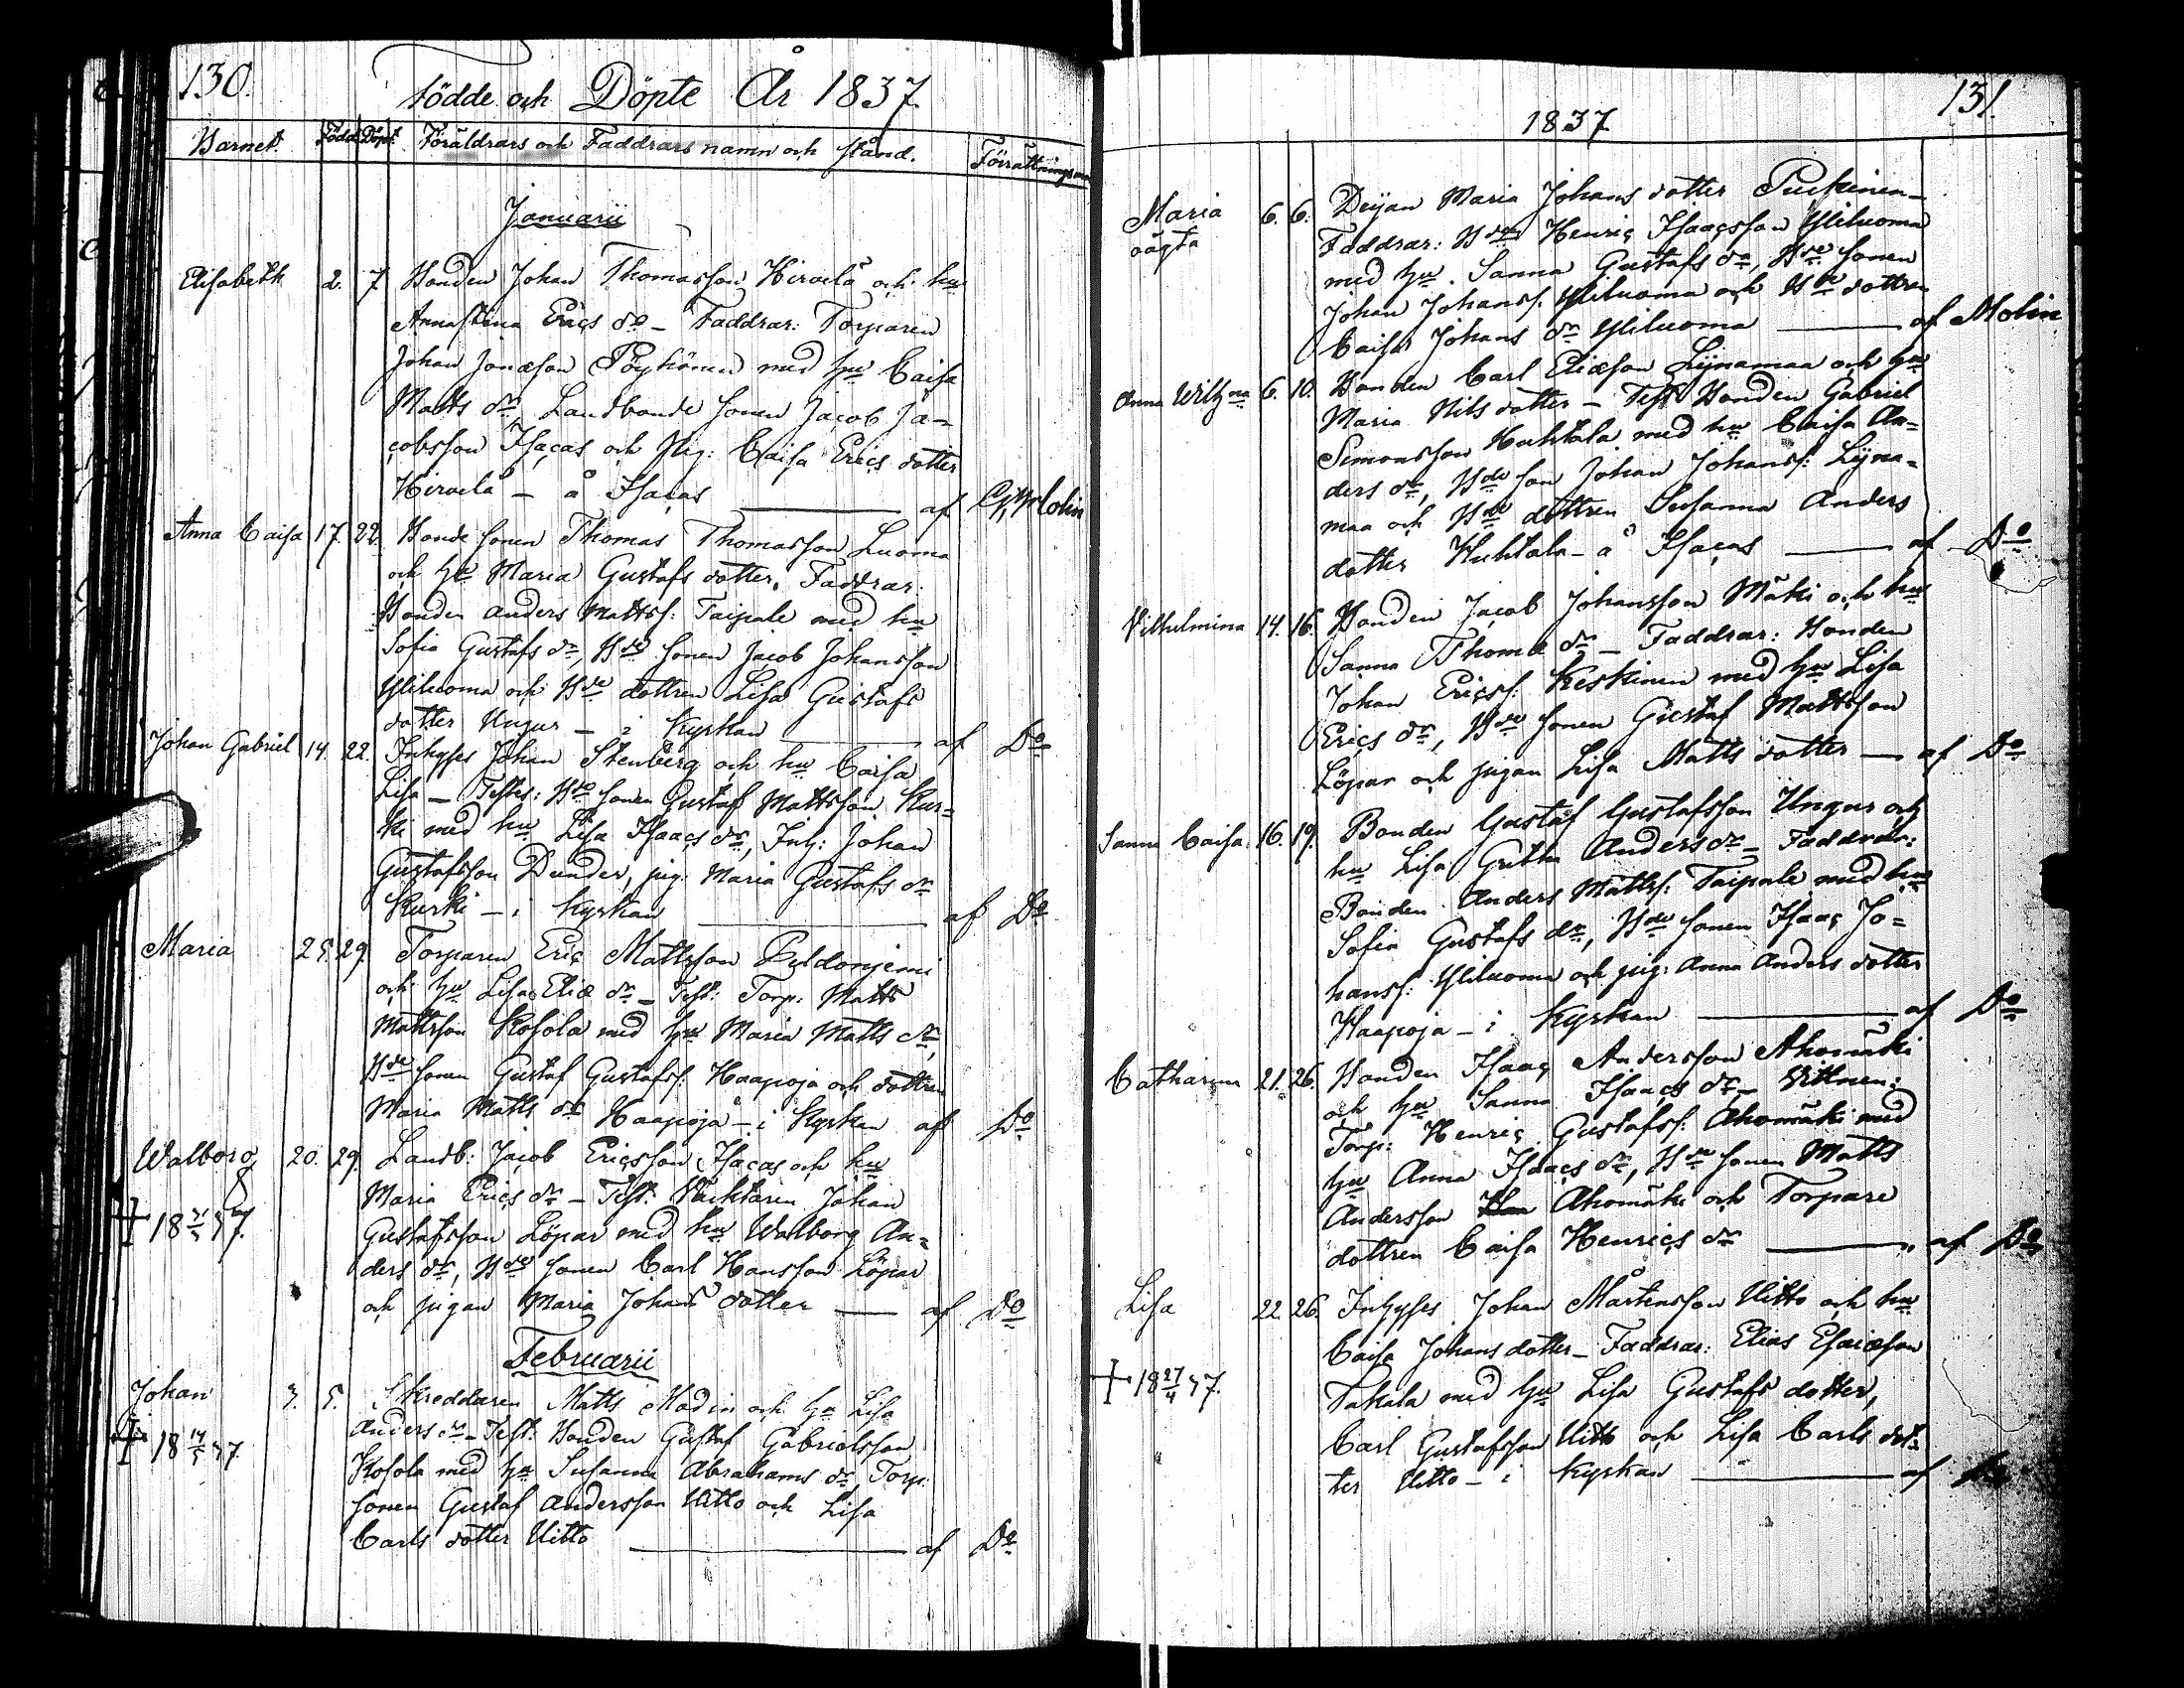 130.
Födde och Döpte År 1837.
Barnet. Född Döpt Föräldrars och Faddrars namn och stånd. Förrättningsm
Januarii
Elisabeth 2. 7 Bonden Johan Thomasson Hirvelä och hu
Annastina Erics dr – Faddrar: Torparen
Johan Jonæson Pöyhönen med hu Caisa
Matts dr, Landbonde sonen Jacob Ja=
cobsson Isacas och pig: Caisa Erics dotter
Hirvelä – å Isacas af Molin
Anna Caisa 17. 22. Bonde sonen Thomas Thomasson Luoma
och hu Maria Gustafs dotter. Faddrar:
Bonden Anders Mattss: Taipale med hu
Sofia Gustafs dr, Bde sonen Jacob Johansson
Yliluoma och Bde dottren Lisa Gustafs
dotter Ungur – i Kyrkan af Do
Johan Gabriel 14. 22. Inhyses Johan Stenberg och hu Caisa
Lisa – Testes: Bde sonen Gustaf Mattsson Kur=
ki med hu Lisa Isaacs dr, Inh: Johan
Gustafsson Dunder, pig: Maria Gustafs dr
Kurki – i Kyrkan af Do
Maria 25. 29. Torparen Eric Mattsson Peldoniemi
och hu Lisa Eliæ dr – Test: Torp: Matts
Mattsson Kosola med hu Maria Matts dr,
Bde sonen Gustaf Gustafss: Haapoja och dottren
Maria Matts dr Haapoja – i Kyrkan af Do
Walborg 20. 29. Landb: Jacob Ericsson Isacas och hu
Maria Erics dr – Test: Väcktaren Johan
† 18 37. Gustafsson Löpar med hu Walborg An=
ders dr, Bde sonen Carl Hansson Löpar
och pigan Maria Johans dotter af Do
Februarii
Johan 3. 5. Skreddaren Matts Modin och hu Lisa
Anders dr – Test: Bonden Gustaf Gabrielsson
† 18 37. Kosola med hu Susanna Abrahams dr, Torp:
sonen Gustaf Andersson Uitto och Lisa
Carls dotter Uitto af Do
131.
1837
Maria 6. 6. Deijan Maria Johans dotter Puskinen –
oägta Faddrar: Bden Henric Isaacsson Yliluoma
med hu. Sanna Gustafs dr, Bde sonen
Johan Johanss: Yliluoma och Bde dottren
Caisa Johans dr Yliluoma af Molin
Anna Wilhna 6. 10. Bonden Carl Eliæson Lijnamaa och hu
Maria Nils dotter – Test Bonden Gabriel
Simonsson Huhtala med hu Caisa An=
ders dr, Bde son Johan Johanss: Lijna=
maa och Bde dottren Susanna Anders
dotter Huhtala – å Isacas af Do
Vilhelmina 14. 16. Bonden Jacob Johansson Mäki och hu
Sanna Thomæ dr – Faddrar: Bonden
Johan Ericss: Keskinen med hu Lisa
Erics dr, Bde sonen Gustaf Mattsson
Löpar och pigan Lisa Matts dotter – af Do
Sanna Caisa. 16. 19. Bonden Gustaf Gustafsson Ungur och
hu Lisa Gretha Anders dr – Faddrar:
Bonden Anders Mattss: Taipale med hu
Sofia Gustafs dr, Bde sonen Isaac Jo=
hanss: Yliluoma och pig: Anna Anders dotter
Haapoja – i Kyrkan af Do
Catharina 21. 26. Bonden Isaac Andersson Ahomäki
och hu Sanna Isaacs dr – Vittnen:
Torp: Henric Gustafss: Ahomäki med
hu Anna Isaacs dr, Bde sonen Matts
Andersson Ahomäki och Torpare
dottren Caisa Henrics dr af Do
Lisa 22. 26. Inhyses Johan Mårtensson Uitto och hu
Caisa Johans dotter – Faddrar: Elias Esaiæson
† 18 27/4 37. Takala med hu Lisa Gustafs dotter,
Carl Gustafsson Uitto och Lisa Carls dot=
ter Uitto – i Kyrkan af Do